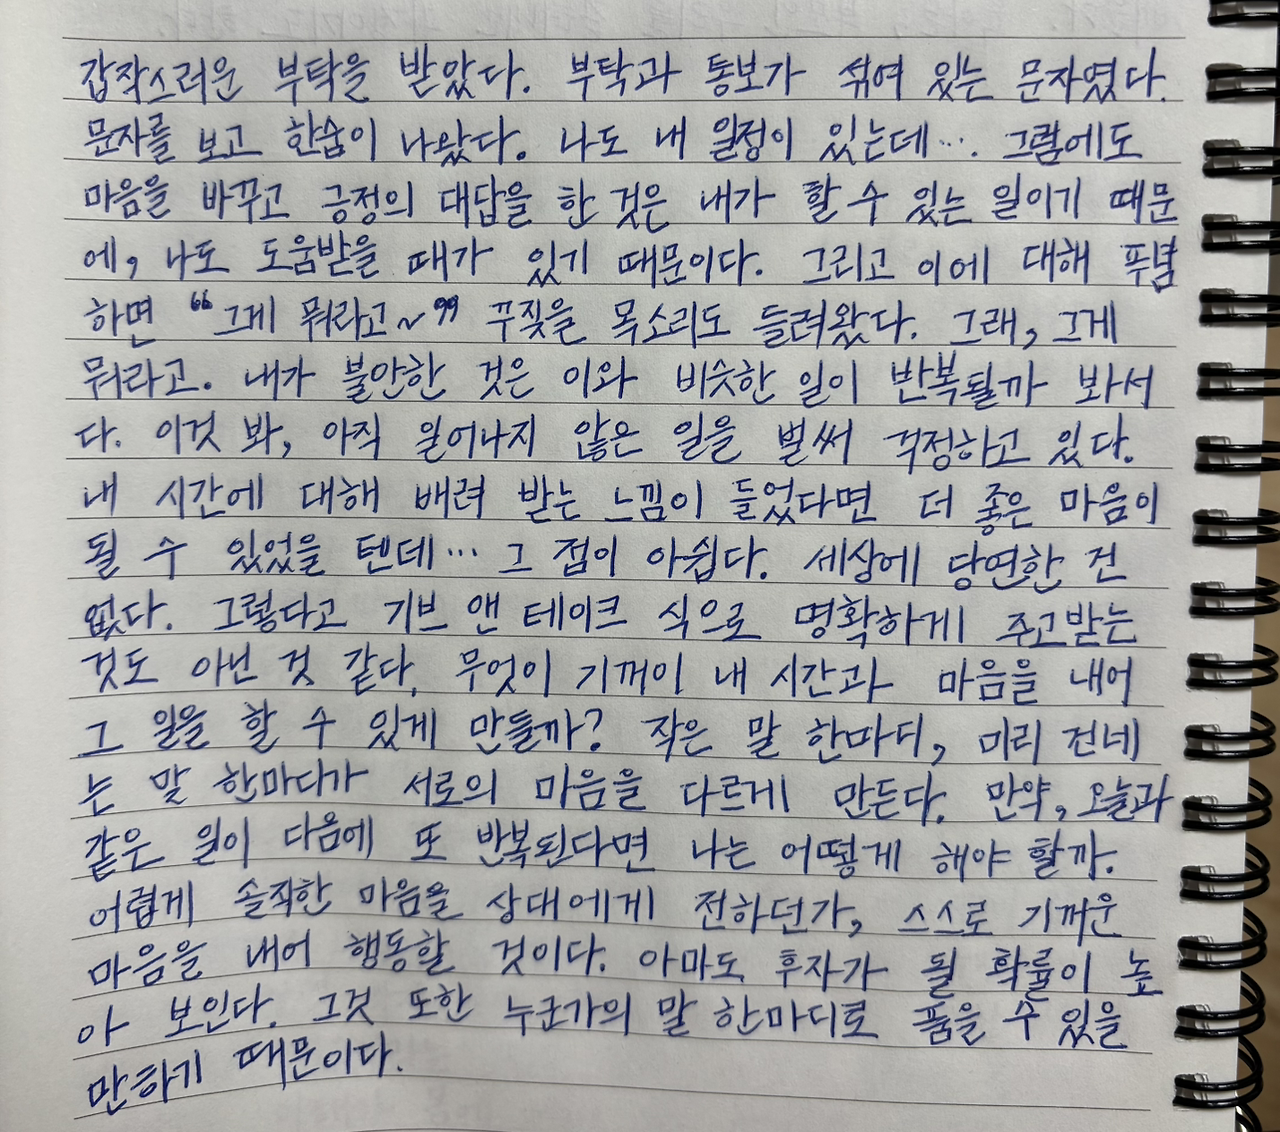 갑작스러운 부탁을 받았다. 부탁과 통보가 섞여 있는 문자였다.
문자를 보고 한숨이 나왔다. 나도 내 일정이 있는데…. 그럼에도
마음을 바꾸고 긍정의 대답을 한 것은 내가 할 수 있는 일이기 때문
에, 나도 도움받을 때가 있기 때문이다. 그리고 이에 대해 푸념
하면 "그게 뭐라고~" 꾸짖을 목소리도 들려왔다. 그래, 그게
뭐라고. 내가 불안한 것은 이와 비슷한 일이 반복될까 봐서
다. 이것 봐, 아직 일어나지 않은 일을 벌써 걱정하고 있다.
내 시간에 대해 배려 받는 느낌이 들었다면 더 좋은 마음이
될 수 있었을 텐데… 그 점이 아쉽다. 세상에 당연한 건
없다. 그렇다고 기브 앤 테이크 식으로 명확하게 주고받는
것도 아닌 것 같다. 무엇이 기꺼이 내 시간과 마음을 내어
그 일을 할 수 있게 만들까? 작은 말 한마디, 미리 건네
는 말 한마디가 서로의 마음을 다르게 만든다. 만약, 오늘과
같은 일이 다음에 또 반복된다면 나는 어떻게 해야 할까.
어렵게 솔직한 마음을 상대에게 전하던가, 스스로 기꺼운
마음을 내어 행동할 것이다. 아마도 후자가 될 확률이 높
아 보인다. 그것 또한 누군가의 말 한마디로 품을 수 있을
만하기 때문이다.